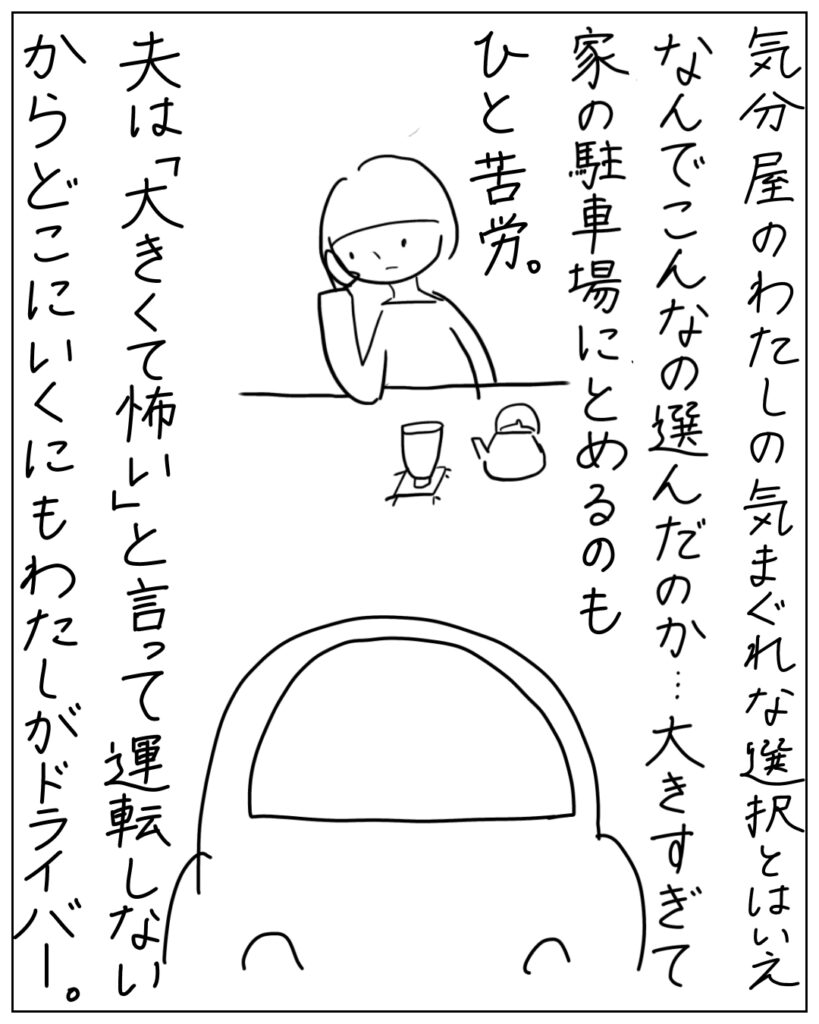 気分屋のわたしの気まぐれな選択とはいえ
なんでこんなの選んだのか…大きすぎて
家の駐車場にとめるのも
ひと苦労。
夫は「大きくて怖い」と言って運転しない
からどこにいくにもわたしがドライバー。